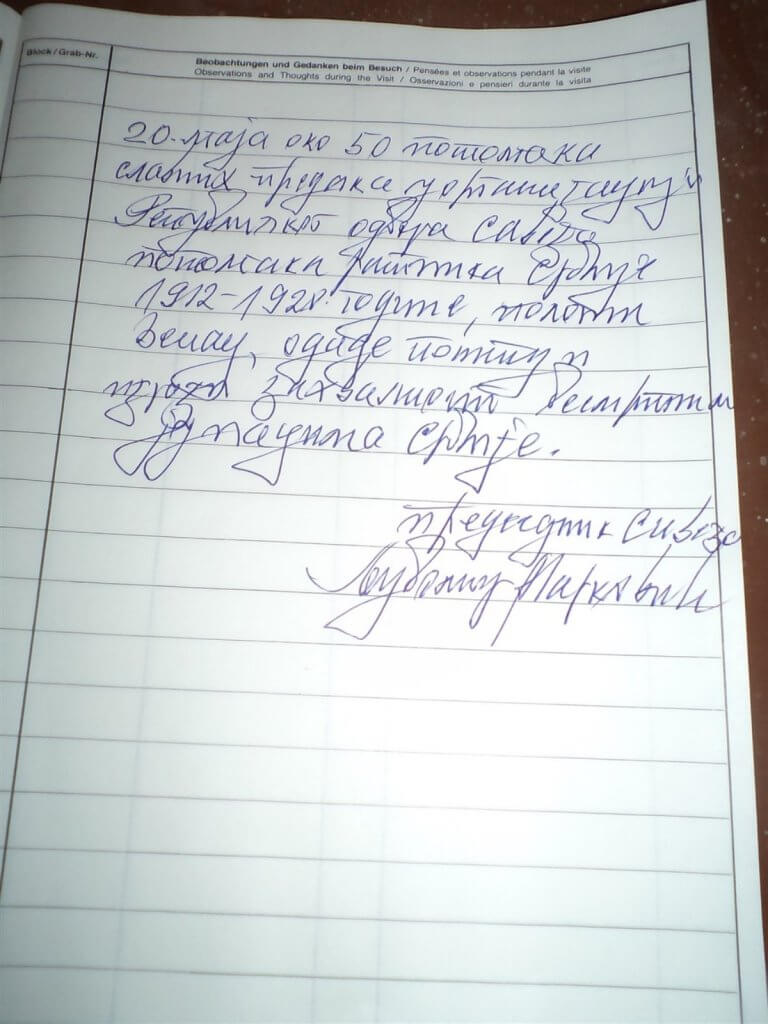 Block / Grab-Nr.
Beobachtungen und Gedanken beim Besuch / Pensées et observations pendant la visite
Observations and Thoughts during the Visit / Osservazioni e pensieri durante la visita
20. маја око 50 потомака
славних предака у организацији
Републичког одбора Савеза
потомака ратника Србије
1912-1920. године, посети
одаде почту и
захвалност бесмртним
јунацима Србије.
председник Савеза
Љубомир Марковић